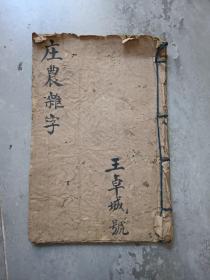 庄農雜字
王卓城號